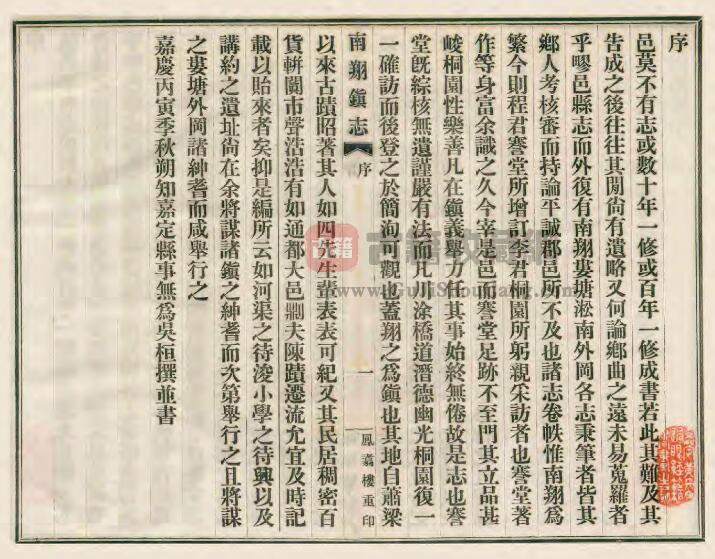 序
邑莫不有志或數十年一修或百年一修成書若此其難及其
告成之後往往其閒尙有遺略又何論鄕曲之遠未易蒐羅者
乎嘐邑縣志而外復有南翔婁塘淞南外岡各志秉筆者皆其
鄕人考核審而持論平誠郡邑所不及也諸志卷帙惟南翔爲
繁今則程君謇堂所增訂李君桐園所躬親采訪者也謇堂著
作等身富余識之久今宰是邑而謇堂足跡不至門其立品甚
峻桐園性樂善凡在鎭義舉力任其事始終無倦故是志也謇
堂旣綜核無遺謹嚴有法而凡川涂橋道潛德幽光桐園復一
一確訪而後登之於簡洵可觀也蓋翔之爲鎭也其地自蕭梁
南翔鎭志
序
一
鳳嘉樓重印
以來古蹟昭著其人如四先生輩表表可紀又其民居稠密百
貨輧闐市聲浩浩有如通都大邑剬夫陳蹟遷流允宜及時記
載以貽來者矣抑是編所云如河渠之待浚小學之待興以及
講約之遺址尙在余將謀諸鎭之紳耆而次第舉行之且將謀
之婁塘外岡諸紳耆而咸舉行之
嘉慶丙寅季秋朔知嘉定縣事無爲吳桓撰並書
古籍
www.GujiShouCang.com